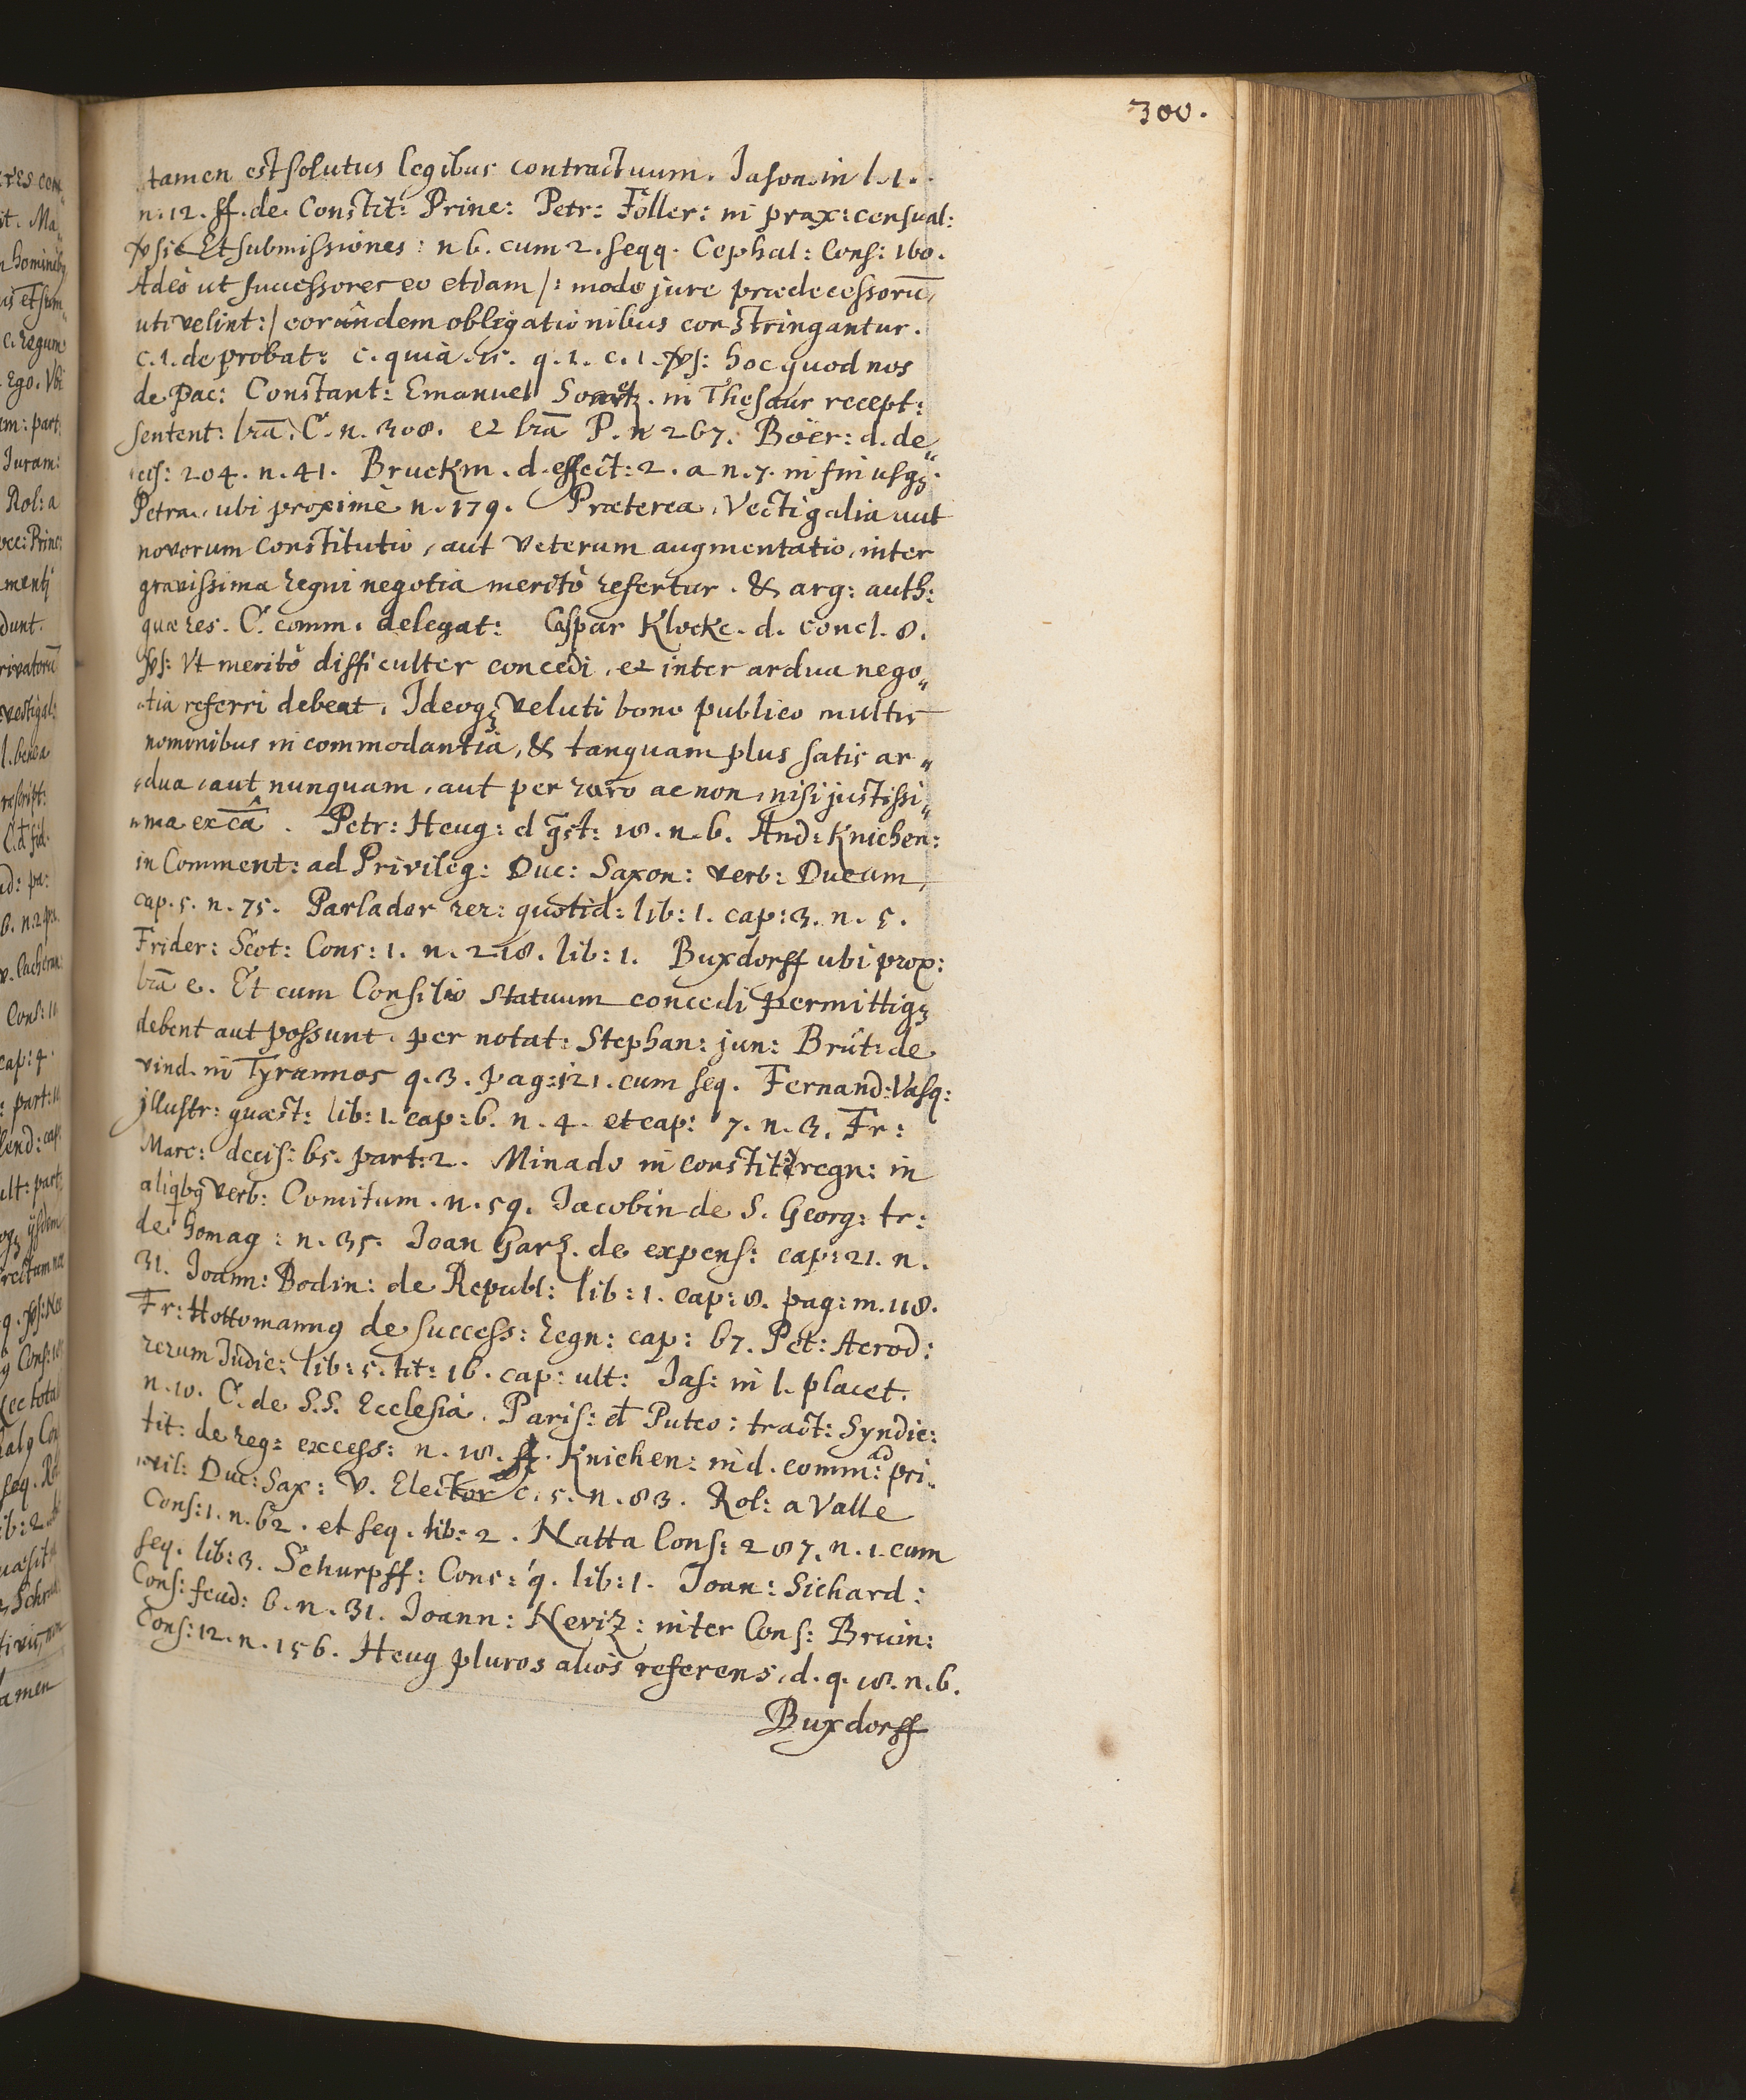 300.
tamen est solutus legibus contractuum. Jason. in l. 1.
n. 12. ff. de Constit: Princ: Petr: Foller: in prax: censual:
Et submissiones: n 6. cum 2. seqq. Cephal: Cons: 160.
Adeò ut successores eo etiam /: modo jure prædecessorū
uti velint :/ eorundem obligationibus constringantur.
c. 1. de probat: c. quia. 15. q. 1. c. 1. §: hoc quod nos
de Pac: Constant: Emanuel in Thesaur recept:
Sentent: lrā. C. n. 308. et lrā P. n 267. Böer: d. de„
cis: 204. n. 41. Bruckm. d. effect: 2. a n. 7. in fin usqȝ
Petra. ubi proximè n. 179. Præterea, Vectigalia aut
novorum Constitutio, aut veterum augmentatio, inter
gravissima regni negotia meritò refertur. & arg: auth:
quæ res. C. comm. delegat: Caspar Klocke. d. concl. 8.
Vt meritò difficulter concedi, et inter ardua nego„
tia referri debeat. Ideoqȝ veluti bono publico multis
nominibus incommodantia, & tanquam plus satis ar„
dua, aut nunquam, aut per raro ac non, nisi justissi„
ma ex cā. Petr: Heug: d qst: 18. n. 6. And: Knichen:
in Comment: ad Privileg: Duc: Saxon: verb: Ducum,
cap. 5. n. 75. Parlador rer: quotid: lib: 1. cap: 3. n. 5.
Frider: Scot: Cons: 1. n. 218. lib: 1. Buxdorff ubi prox:
lrā e. Et cum Consilio Statuum concedi permittiqȝ
debent aut possunt. per notat: Stephan: jun: Brut: de
vind. in Tyrannos q. 3. pag: 121. cum seq. Fernand: Vasq:
jllustr: quæst: lib: 1. cap: 6. n. 4. et cap: 7. n. 3. Fr:
Marc: decis: 65. part: 2. Minado in constit: regn: in
aliqbꝯ verb: Comitum. n. 59. Jacobin de S. Georg: tr:
de homag: n. 35. Joan Garz. de expens: cap: 21. n.
31. Joann: Bodin: de Republ: lib: 1. cap: 8. pag: m. 118.
Fr: Hottomannꝯ de success: regn: cap: 67. Pet: Aerod:
rerum Judic: lib: 5. tit: 16. cap: ult: Jas: in l. placet.
n. 10. C. de S.S. Ecclesiâ. Paris: d Puteo: tract: Syndic:
tit: de reg: excess: n. 18. ff. Knichen: in d. comm: ad pri„
vil: Duc: Sax: V. Elector c. 5. n. 83. Rol: a Valle
Cons: 1. n. 62. et seq. lib: 2. Natta Cons: 287. n. 1. cum
seq. lib: 3. Schurpff: Cons: 9. lib: 1. Joan: Sichard:
Cons: feud: 6. n. 31. Joann: Neviz: inter Cons: Bruin:
Cons: 12. n. 156. Heug plures alios referens, d. q. 18. n. 6.
Buxdorff